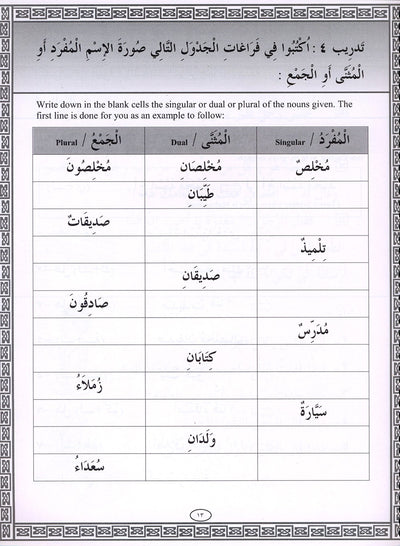 تدريب ٤ : اُكْتُبُوا فِي فَرَاغَاتِ الْجَدْوَلِ التَّالِي صُورَةَ الِاسْمِ الْمُفْرَدِ أَوِ
الْمُثَنَّى أَوِ الْجَمْعِ :
Write down in the blank cells the singular or dual or plural of the nouns given. The
first line is done for you as an example to follow:
الْمُفْرَدُ / Singular الْمُثَنَّى / Dual الْجَمْعُ / Plural
مُخْلِصٌ مُخْلِصَانِ مُخْلِصُونَ
طَيِّبَانِ
صَدِيقَاتٌ
تِلْمِيذٌ
صَدِيقَانِ
صَادِقُونَ
مُدَرِّسٌ
كِتَابَانِ
زُمَلَاءُ
سَيَّارَةٌ
وَلَدَانِ
سُعَدَاءُ
١٣